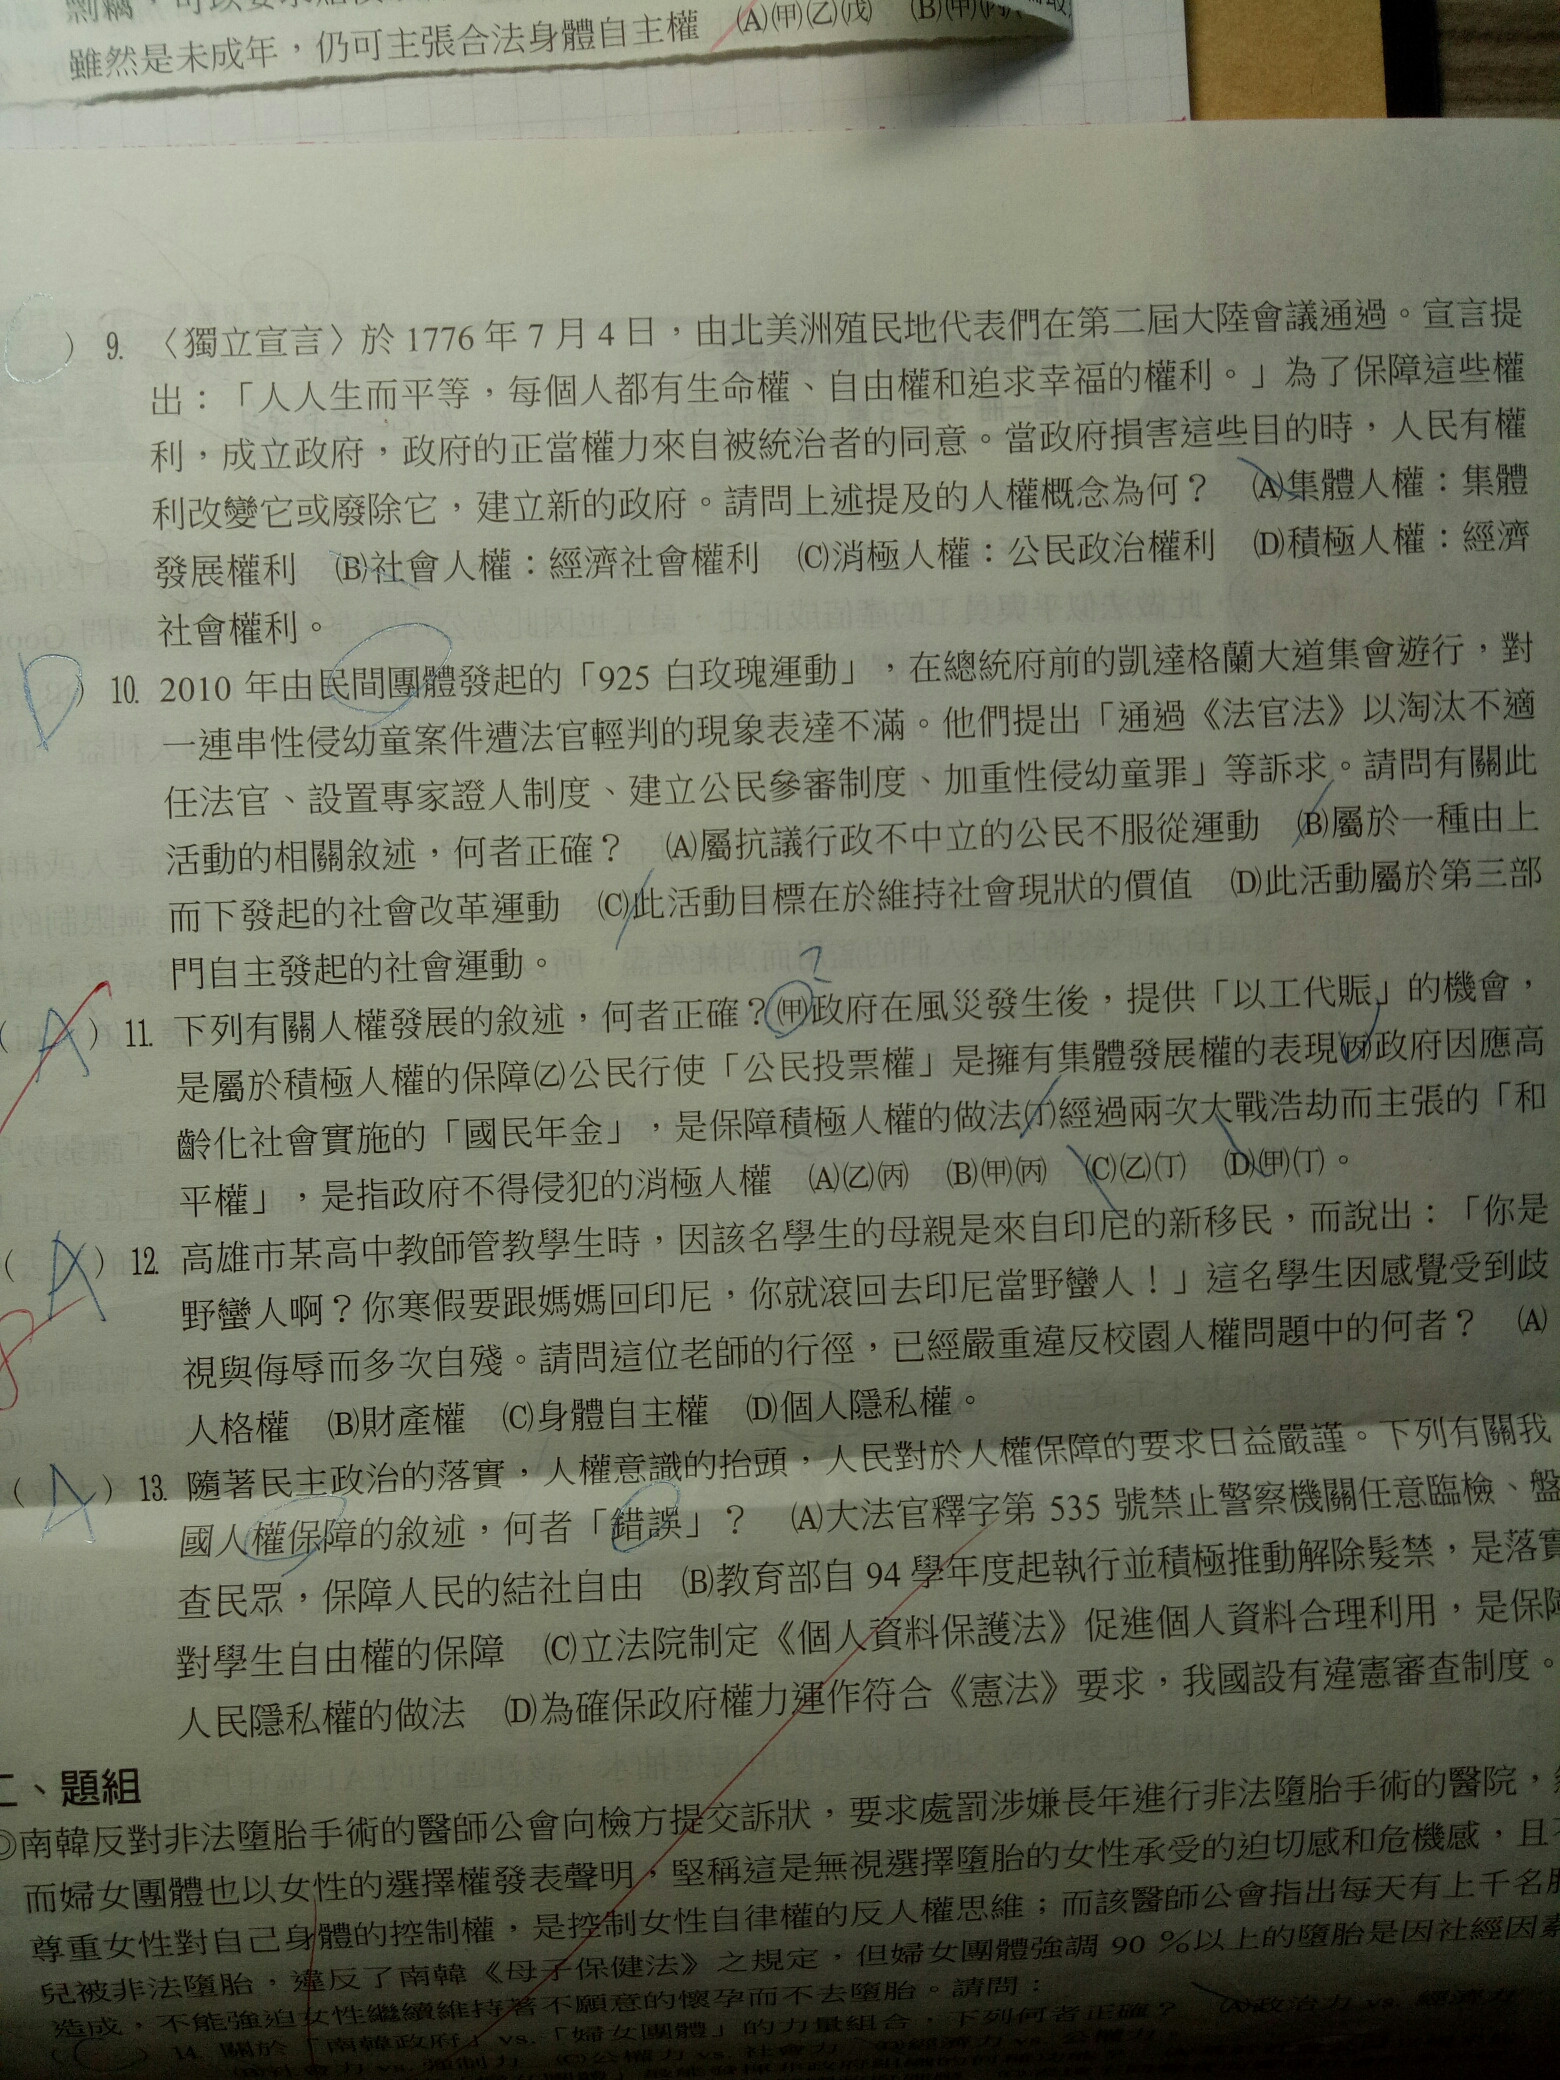 雖然是未成年，仍可主張合法身體自主權　(A)(甲)(乙)(戊)　(B)(甲)(丙)
) 9. 〈獨立宣言〉於 1776 年 7 月 4 日，由北美洲殖民地代表們在第二屆大陸會議通過。宣言提
出：「人人生而平等，每個人都有生命權、自由權和追求幸福的權利。」為了保障這些權
利，成立政府，政府的正當權力來自被統治者的同意。當政府損害這些目的時，人民有權
利改變它或廢除它，建立新的政府。請問上述提及的人權概念為何？　(A)集體人權：集體
發展權利　(B)社會人權：經濟社會權利　(C)消極人權：公民政治權利　(D)積極人權：經濟
社會權利。
D ) 10. 2010 年由民間團體發起的「925 白玫瑰運動」，在總統府前的凱達格蘭大道集會遊行，對
一連串性侵幼童案件遭法官輕判的現象表達不滿。他們提出「通過《法官法》以淘汰不適
任法官、設置專家證人制度、建立公民參審制度、加重性侵幼童罪」等訴求。請問有關此
活動的相關敘述，何者正確？　(A)屬抗議行政不中立的公民不服從運動　(B)屬於一種由上
而下發起的社會改革運動　(C)此活動目標在於維持社會現狀的價值　(D)此活動屬於第三部
門自主發起的社會運動。
?
( A ) 11. 下列有關人權發展的敘述，何者正確？(甲)政府在風災發生後，提供「以工代賑」的機會，
是屬於積極人權的保障(乙)公民行使「公民投票權」是擁有集體發展權的表現(丙)政府因應高
齡化社會實施的「國民年金」，是保障積極人權的做法(丁)經過兩次大戰浩劫而主張的「和
平權」，是指政府不得侵犯的消極人權　(A)(乙)(丙)　(B)(甲)(丙)　(C)(乙)(丁)　(D)(甲)(丁)。
( A ) 12. 高雄市某高中教師管教學生時，因該名學生的母親是來自印尼的新移民，而說出：「你是
野蠻人啊？你寒假要跟媽媽回印尼，你就滾回去印尼當野蠻人！」這名學生因感覺受到歧
視與侮辱而多次自殘。請問這位老師的行徑，已經嚴重違反校園人權問題中的何者？　(A)
人格權　(B)財產權　(C)身體自主權　(D)個人隱私權。
( A ) 13. 隨著民主政治的落實，人權意識的抬頭，人民對於人權保障的要求日益嚴謹。下列有關我
國人權保障的敘述，何者「錯誤」？　(A)大法官釋字第 535 號禁止警察機關任意臨檢、盤
查民眾，保障人民的結社自由　(B)教育部自 94 學年度起執行並積極推動解除髮禁，是落實
對學生自由權的保障　(C)立法院制定《個人資料保護法》促進個人資料合理利用，是保障
人民隱私權的做法　(D)為確保政府權力運作符合《憲法》要求，我國設有違憲審查制度。
二、題組
◎南韓反對非法墮胎手術的醫師公會向檢方提交訴狀，要求處罰涉嫌長年進行非法墮胎手術的醫院，
而婦女團體也以女性的選擇權發表聲明，堅稱這是無視選擇墮胎的女性承受的迫切感和危機感，且
尊重女性對自己身體的控制權，是控制女性自律權的反人權思維；而該醫師公會指出每天有上千名胎
兒被非法墮胎，違反了南韓《母子保健法》之規定，但婦女團體強調 90 %以上的墮胎是因社經因素
造成，不能強迫女性繼續維持著不願意的懷孕而不去墮胎。請問：
( ) 14. 關於「南韓政府」vs.「婦女團體」的力量組合，下列何者正確？　(A)政治力 vs. 經濟力
(B)社會力 vs. 強制力　(C)公權力 vs. 社會力　(D)經濟力 vs. 公權力